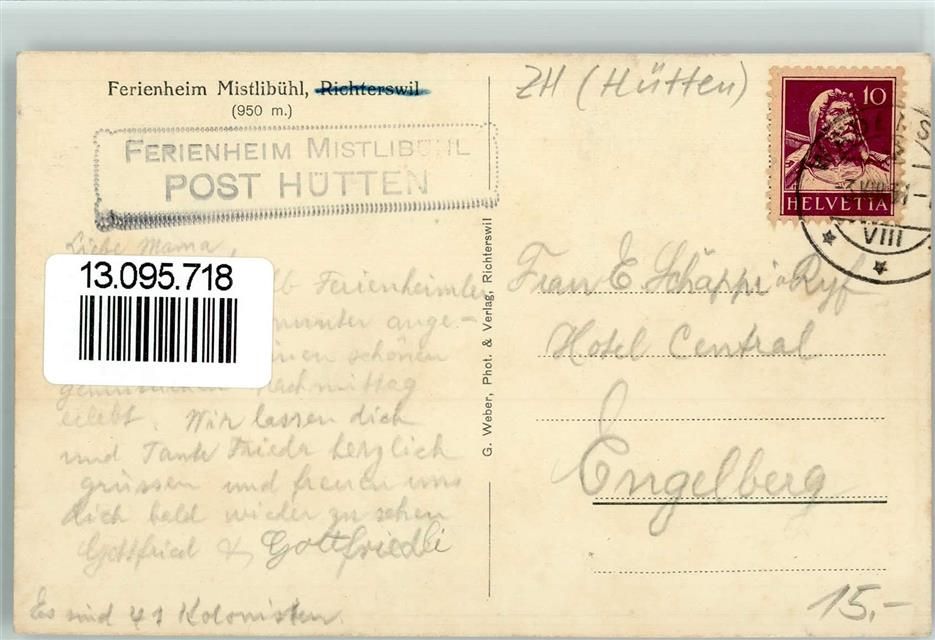 Ferienheim Mistlibühl, Richterswil
(950 m.)
FERIENHEIM MISTLIBÜHL
POST HÜTTEN
Liebe Mama,
13.095.718
Ferienheimler
munter ange-
schönen
Nachmittag
erlebt. Wir lassen dich
und Tante Frieda herzlich
grüssen und freuen uns
dich bald wieder zu sehen
Gottfried & Gottfriedli
Es sind 41 Kolonisten.
G. Weber, Phot. & Verlag, Richterswil
ZH (Hütten)
10
HELVETIA
VIII
Frau E. Schäppi-Ryf
Hotel Central
Engelberg
15.-